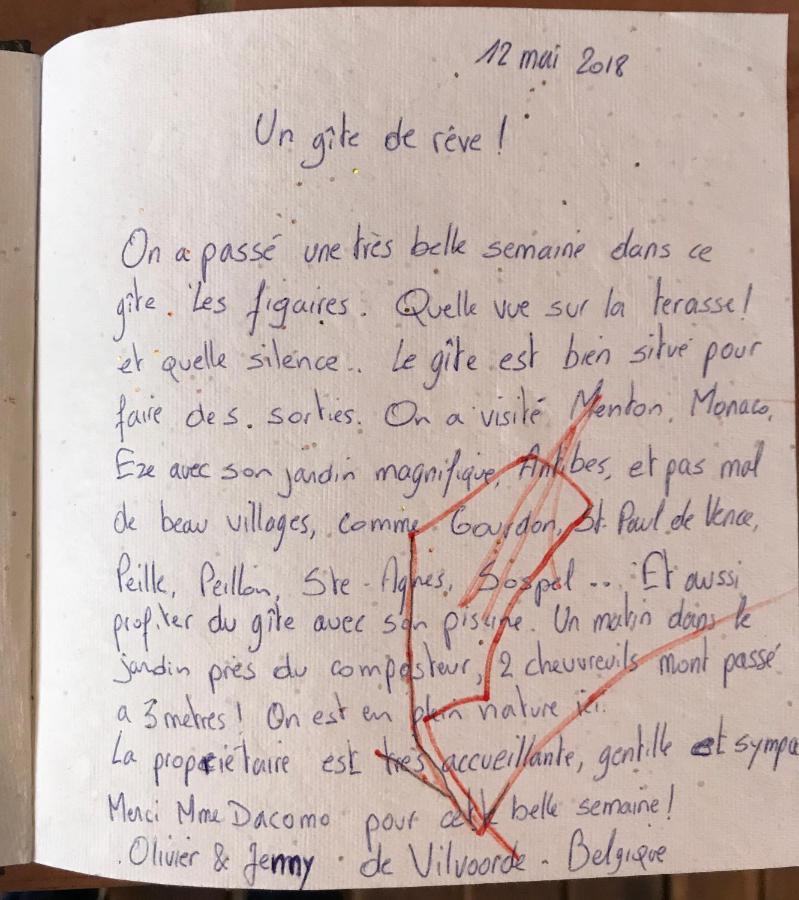 12 mai 2018
Un gîte de rêve !
On a passé une très belle semaine dans ce
gîte. Les figaires. Quelle vue sur la terasse!
et quelle silence.. Le gîte est bien situé pour
faire des. sorties. On a visité Menton, Monaco,
Eze avec son jardin magnifique, Antibes, et pas mal
de beau villages, comme Gourdon, St. Paul de Vence,
Peille, Peillon, Ste-Agnes, Sospel... Et aussi
profiter du gîte avec son piscine. Un matin dans le
jardin près du composteur, 2 cheuvreuils mont passé
a 3 metres! On est en plein nature ici.
La propriétaire est très accueillante, gentille et sympa
Merci Mme Dacomo pour cette belle semaine!
Olivier & Jenny de Vilvoorde - Belgique